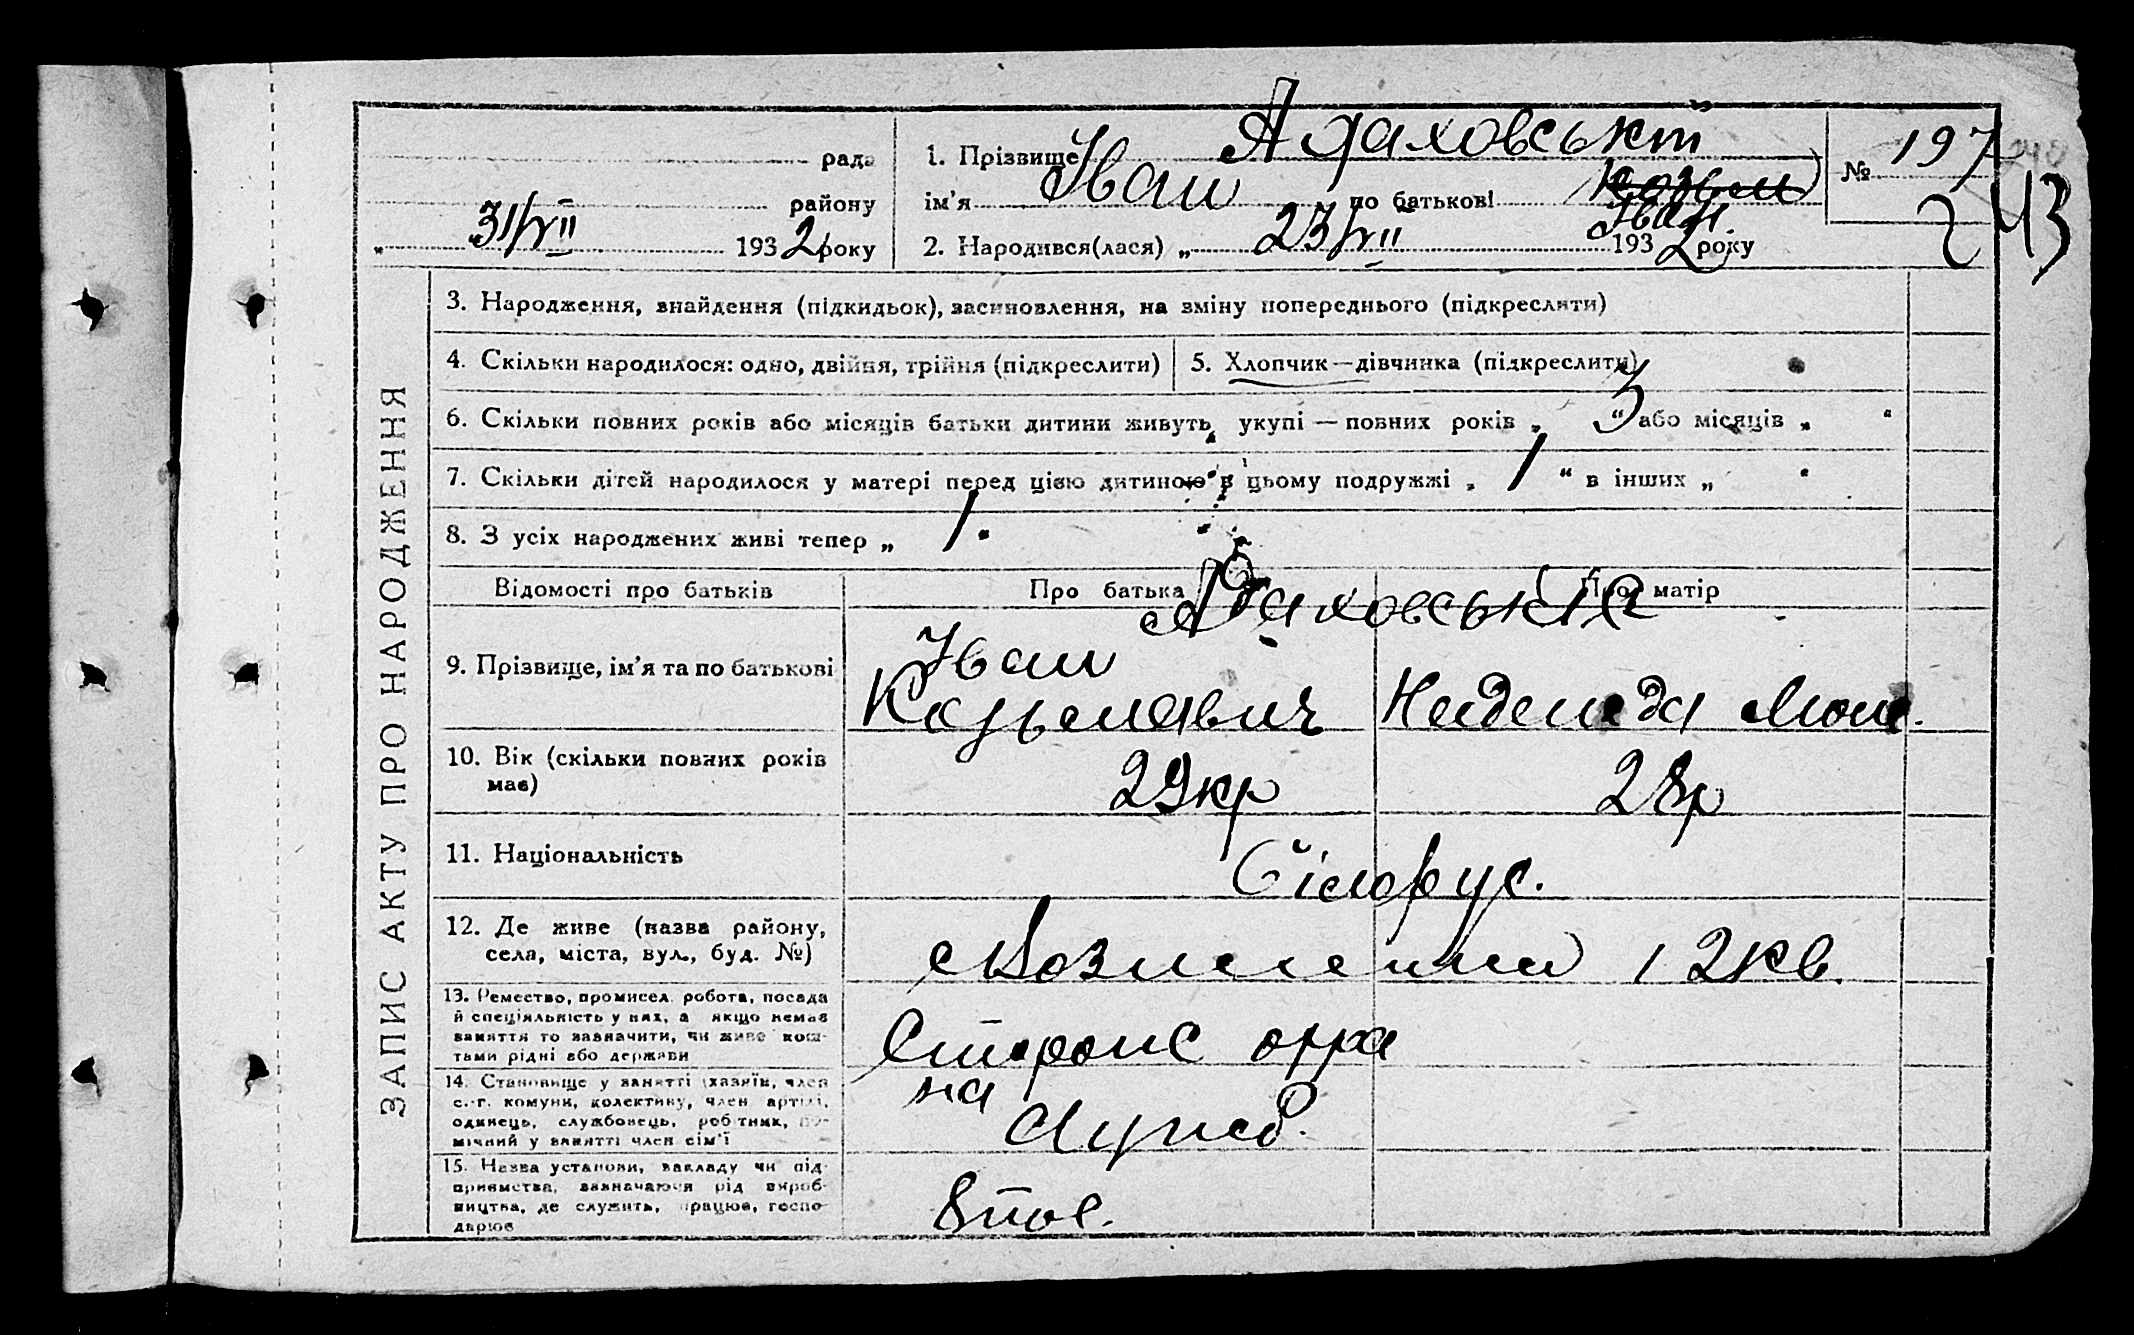 рада
района
31/VII 1932 року
1. Прізвище
ім'я Іван по батькові Іван.
2. Народився(лася) „ 23/VII 1932 року
№ 197
243
ЗАПИС АКТУ ПРО НАРОДЖЕННЯ
3. Народження, знайдення (підкидьок), засиновлення, на зміну попереднього (підкреслити)
4. Скільки народилося: одно, двійня, трійня (підкреслити)
5. Хлопчик—дівчинка (підкреслити)
6. Скільки повних років або місяців батьки дитини живуть укупі — повних років „ 3 “ або місяців „ “
7. Скільки дітей народилося у матері перед цією дитиною в цьому подружжі „ 1 “ в інших „ “
8. З усіх народжених живі тепер „ 1.
Відомості про батьків
Про батька
Про матір
9. Прізвище, ім'я та по батькові
Іван
Козьмович
10. Вік (скільки повних років
має)
29 кр
28р
11. Національність
білорус.
12. Де живе (назва району,
села, міста, вул., буд. №)
12 кв.
13. Ремество, промисел, робота, посада
й спеціяльність у них, а якщо немає
заняття то зазначити, чи живе кош-
тами рідні або держави
14. Становище у занятті (хазяїн, член
с.-г. комуни, колективу, член артілі,
одинець, службовець, робітник, по-
мічний у занятті член сім'ї
на
15. Назва установи, закладу чи під-
приємства, зазначаючи рід вироб-
ництва, де служить, працює, госпо-
дарює